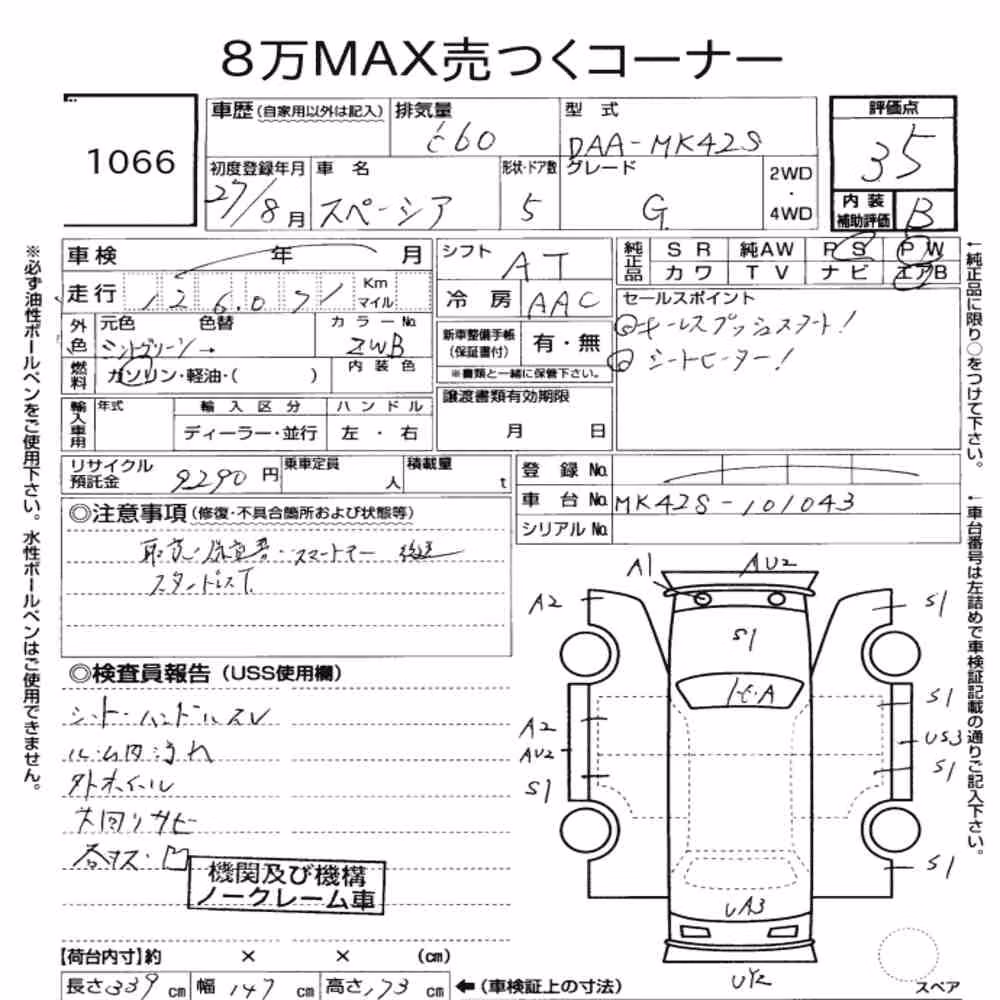 8万MAX売つくコーナー
1066
車歴 (自家用以外は記入) 排気量 型 式
660 DAA-MK42S
初度登録年月 車 名 形状・ドア数 グレード 2WD ・ 4WD
27/8月 スペーシア 5 G
評価点
35
内 装
補助評価 B
車検 年 月
走行 126071 Km マイル
外色 元色 色替 カラーNo.
ミントグリーン→ ZWB
燃料 ガソリン・軽油・( ) 内 装 色
輸入車用 年式 輸 入 区 分 ハ ン ド ル
ディーラー・並行 左 ・ 右
シフト AT
冷 房 AAC
新車整備手帳
(保証書付) 有・無
※書類と一緒に保管下さい。
譲渡書類有効期限
月 日
純正品 S R 純AW P S P W
カ ワ T V ナ ビ エアB
セールスポイント
◎キーレスプッシュスタート!
◎シートヒーター!
リサイクル
預託金 9290円 乗車定員 人 積載量 t
登 録 No.
車 台 No. MK42S-101043
シリアル No.
◎注意事項 (修復・不具合箇所および状態等)
取説・保証書・スマートキー 後送
◎検査員報告 (USS使用欄)
シート・ハンドルスレ
ルーム内汚れ
外ホイール
下回りサビ
各キズ・凹
機関及び機構
ノークレーム車
A1 AU2
A2 S1
S1
A2 S1
AU2 US3
S1 S1
S1
UA3
UY2
スペア
【荷台内寸】約 × × (cm)
長さ339cm 幅147cm 高さ173cm ←(車検証上の寸法)
※必ず油性ボールペンをご使用下さい。水性ボールペンはご使用できません。
←純正品に限り○をつけて下さい。
←車台番号は左詰めで車検証記載の通りご記入下さい。